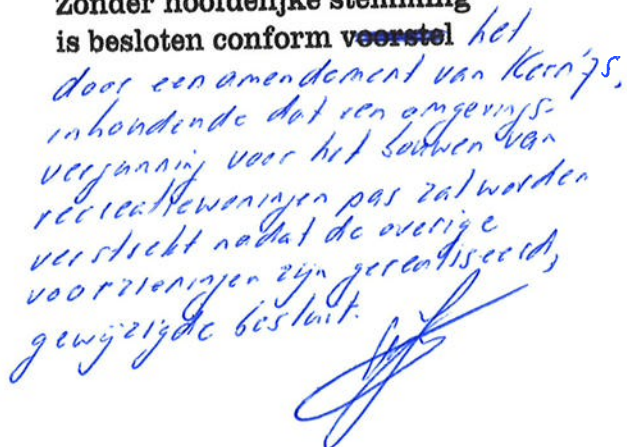 Zonder hoofdelijke stemming
is besloten conform voorstel het
door een amendement van Kern'75,
inhoudende dat een omgevings-
vergunning voor het bouwen van
recreatiewoningen pas zal worden
verstrekt nadat de overige
voorzieningen zijn gerealiseerd,
gewijzigde besluit.